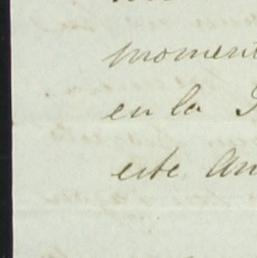 moment
en la
este an